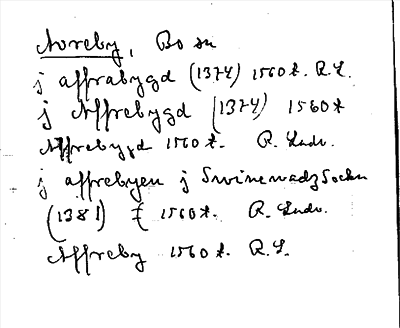 Avreby, Bo sn
j affrabygd (1374) 1560t. R.L.
j Affrebygd (1374) 1560t
Affrebygd 1560t. R. Ludv.
j affrebyen j Swinewadz Sockn
(1381) 1560t. R. Ludv.
Affreby 1560t. R.L.